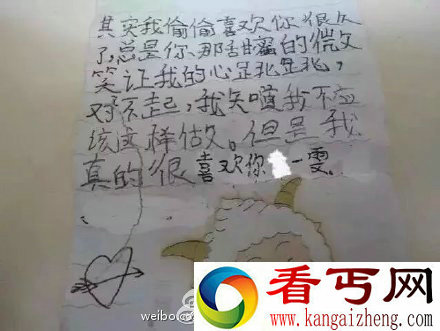 其实我偷偷喜欢你很久
了,总是你那甜蜜的微
笑让我的心跳跳,
对不起,我知道我不应
该这样做。但是我
真的很喜欢你 一雯.
weibo
看丐网
www.kangaizheng.com